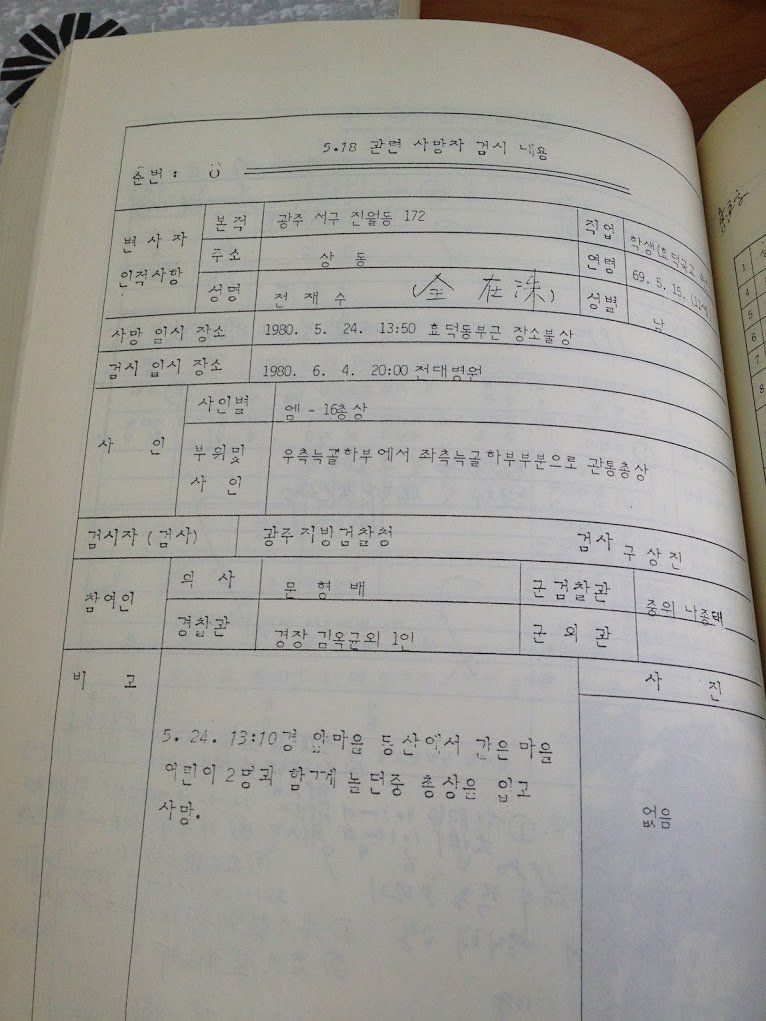 5.18 관련 사망자 검시 내용
순번 :
변사자 인적사항
본적 광주 서구 진월동 172 직업 학생(효덕국교
주소 상 동 연령 69. 5. 15.
성명 전 재 수 (全 在 洙) 성별 남
사망 일시 장소 1980. 5. 24. 13:50 효덕동부근 장소불상
검시 일시 장소 1980. 6. 4. 20:00 전대병원
사 인
사인별 엠 - 16총상
부위및 사 인 우측늑골하부에서 좌측늑골하부부분으로 관통총상
검시자 (검사) 광주지방검찰청 검사 구상진
참여인
의 사 문 형 배 군검찰관 중위 나종태
경찰관 경장 김옥균외 1인 군 의 관
비 고 사 진
5. 24. 13:10경 앞마을 동산에서 같은 마을
어린이 2명과 함께 놀던중 총상을 입고
사망.
없음